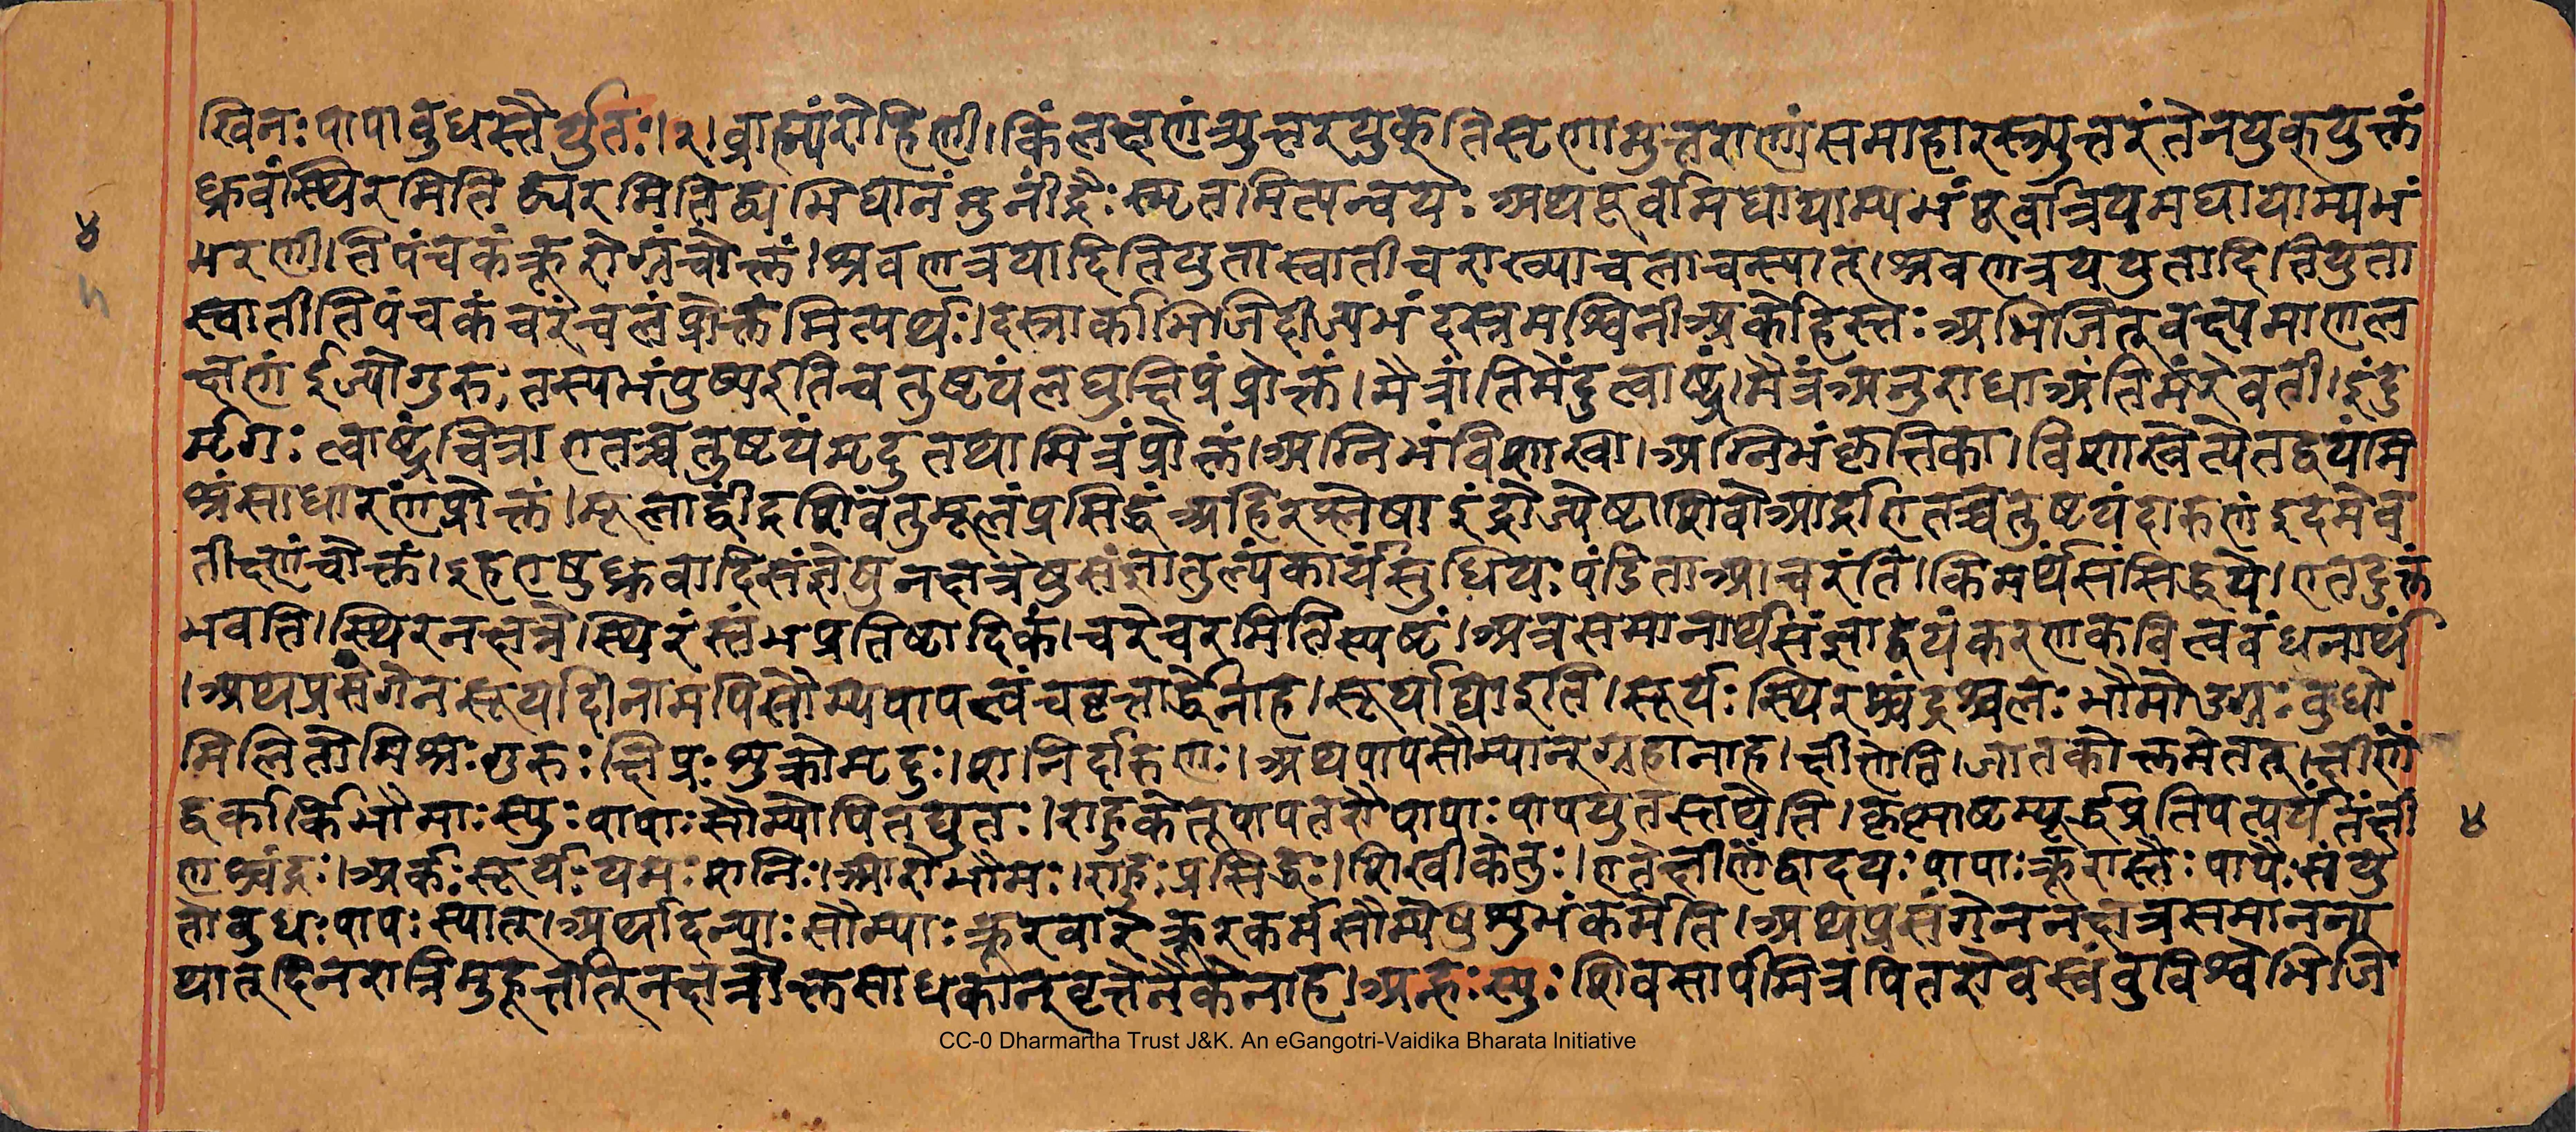 खिनः पापा वुधस्तैर्युतः।२।व्राह्म्यंरोहिणी।किंलक्षणंत्र्युत्तरयुक्तिसृणामुत्तराणांसमाहारस्त्र्युत्तरंतेनयुक्युक्तं
ध्रुवंस्थिरमिति द्व्यरमितिद्व्यभिधानंमुनींद्रैः स्मृतमित्यन्वयः अथपूर्वामघायाम्यभंपूर्वात्रियमघायाम्यभं
भरणी।तिपंचकंक्रूरोग्रंचोक्तं।श्रवणत्रयादितियुतास्वातीचराख्याचलाचस्यात्।श्रवणत्रययुतादितियुता
स्वातीतिपंचकंचरंचलंप्रोक्तंमित्यर्थः।दस्रार्काभिजिदीज्यभंदस्रमश्विनीअर्कोहस्तः अभिजित्वक्ष्यमाणल
क्षणं ईज्योगुरुः तस्यभंपुष्यइतिचतुष्टयंलघुक्षिप्रंप्रोक्तं।मैत्रांतिमेंदुत्वाष्ट्रं।मैत्रंअनुराधाअंतिमंरेवती।इंदु
र्मृगः त्वाष्ट्रंचित्रा एतच्चतुष्टयंमृदुतथामित्रंप्रोक्तं।अग्निभंविशाखा।अग्निभंकृत्तिका।विशाखेत्येतद्वयंमि
श्रंसाधारणंप्रोक्तं।मूलाहींद्रशिवंतुमूलंप्रसिद्धंअहिरश्लेषाइंद्रोज्येष्टाशिवोआर्द्राएतच्चतुष्टयंदारुणंइदमेव
तीक्ष्णंचोक्तं।इहएषुध्रुवादिसंज्ञेषुनक्षत्रेषुसंज्ञातुल्यंकार्यंसुधियः पंडिताआचरंति।किमर्थंसंसिद्धये।एतदुक्तं
भवति।स्थिरनक्षत्रे।स्थिरंस्तंभप्रतिष्टादिकं।चरेचरमितिस्पष्टं।अत्रसमानार्थसंज्ञाद्वयंकरणकवित्ववंधनार्थं
।अथप्रसंगेनसूर्यादीनामपिसौम्यपापत्वंचवृत्तार्द्धेनाह।सूर्याद्याइति।सूर्यः स्थिरश्चंद्रश्चलः भौमोउग्रः वुधो
मिलितोमिश्रः गुरुः क्षिप्रः शुक्रोमृदुः।शनिर्दारुणः।अथपापसौम्यान्ग्रहानाह।क्षीणेति।जातकोक्तमेतत्।क्षीणें
द्वर्कार्किभौमाः स्युः पापाः सौम्योपितद्युतः।राहुकेतूपापतरौपापाः पापयुतस्तथेति।कृष्णाष्टम्यूर्द्ध्वप्रतिपत्पर्यंतंक्षी
णश्चंद्रः।अर्कः सूर्यः यमः शनिः।आरोभौमः।राहुः प्रसिद्धः।शिखीकेतुः।एतेक्षीणेंद्वादयः पापाः क्रूरास्तैः पापैः संयु
तोवुधः पापः स्यात्।अर्थादन्याः सौम्याः क्रूरवारेक्रूरकर्मसौम्येषुशुभंकर्मेति।अथप्रसंगेननक्षत्रसमानना
थात्दिनरात्रिमुहूर्त्तान्नक्षत्रोक्तसाधकान्वृत्तेनैकेनाह।अह्नः स्युः शिवसार्पमित्रपितरोवस्वंवुविश्वेभिजि
४
५
४
CC-0 Dharmartha Trust J&K. An eGangotri-Vaidika Bharata Initiative